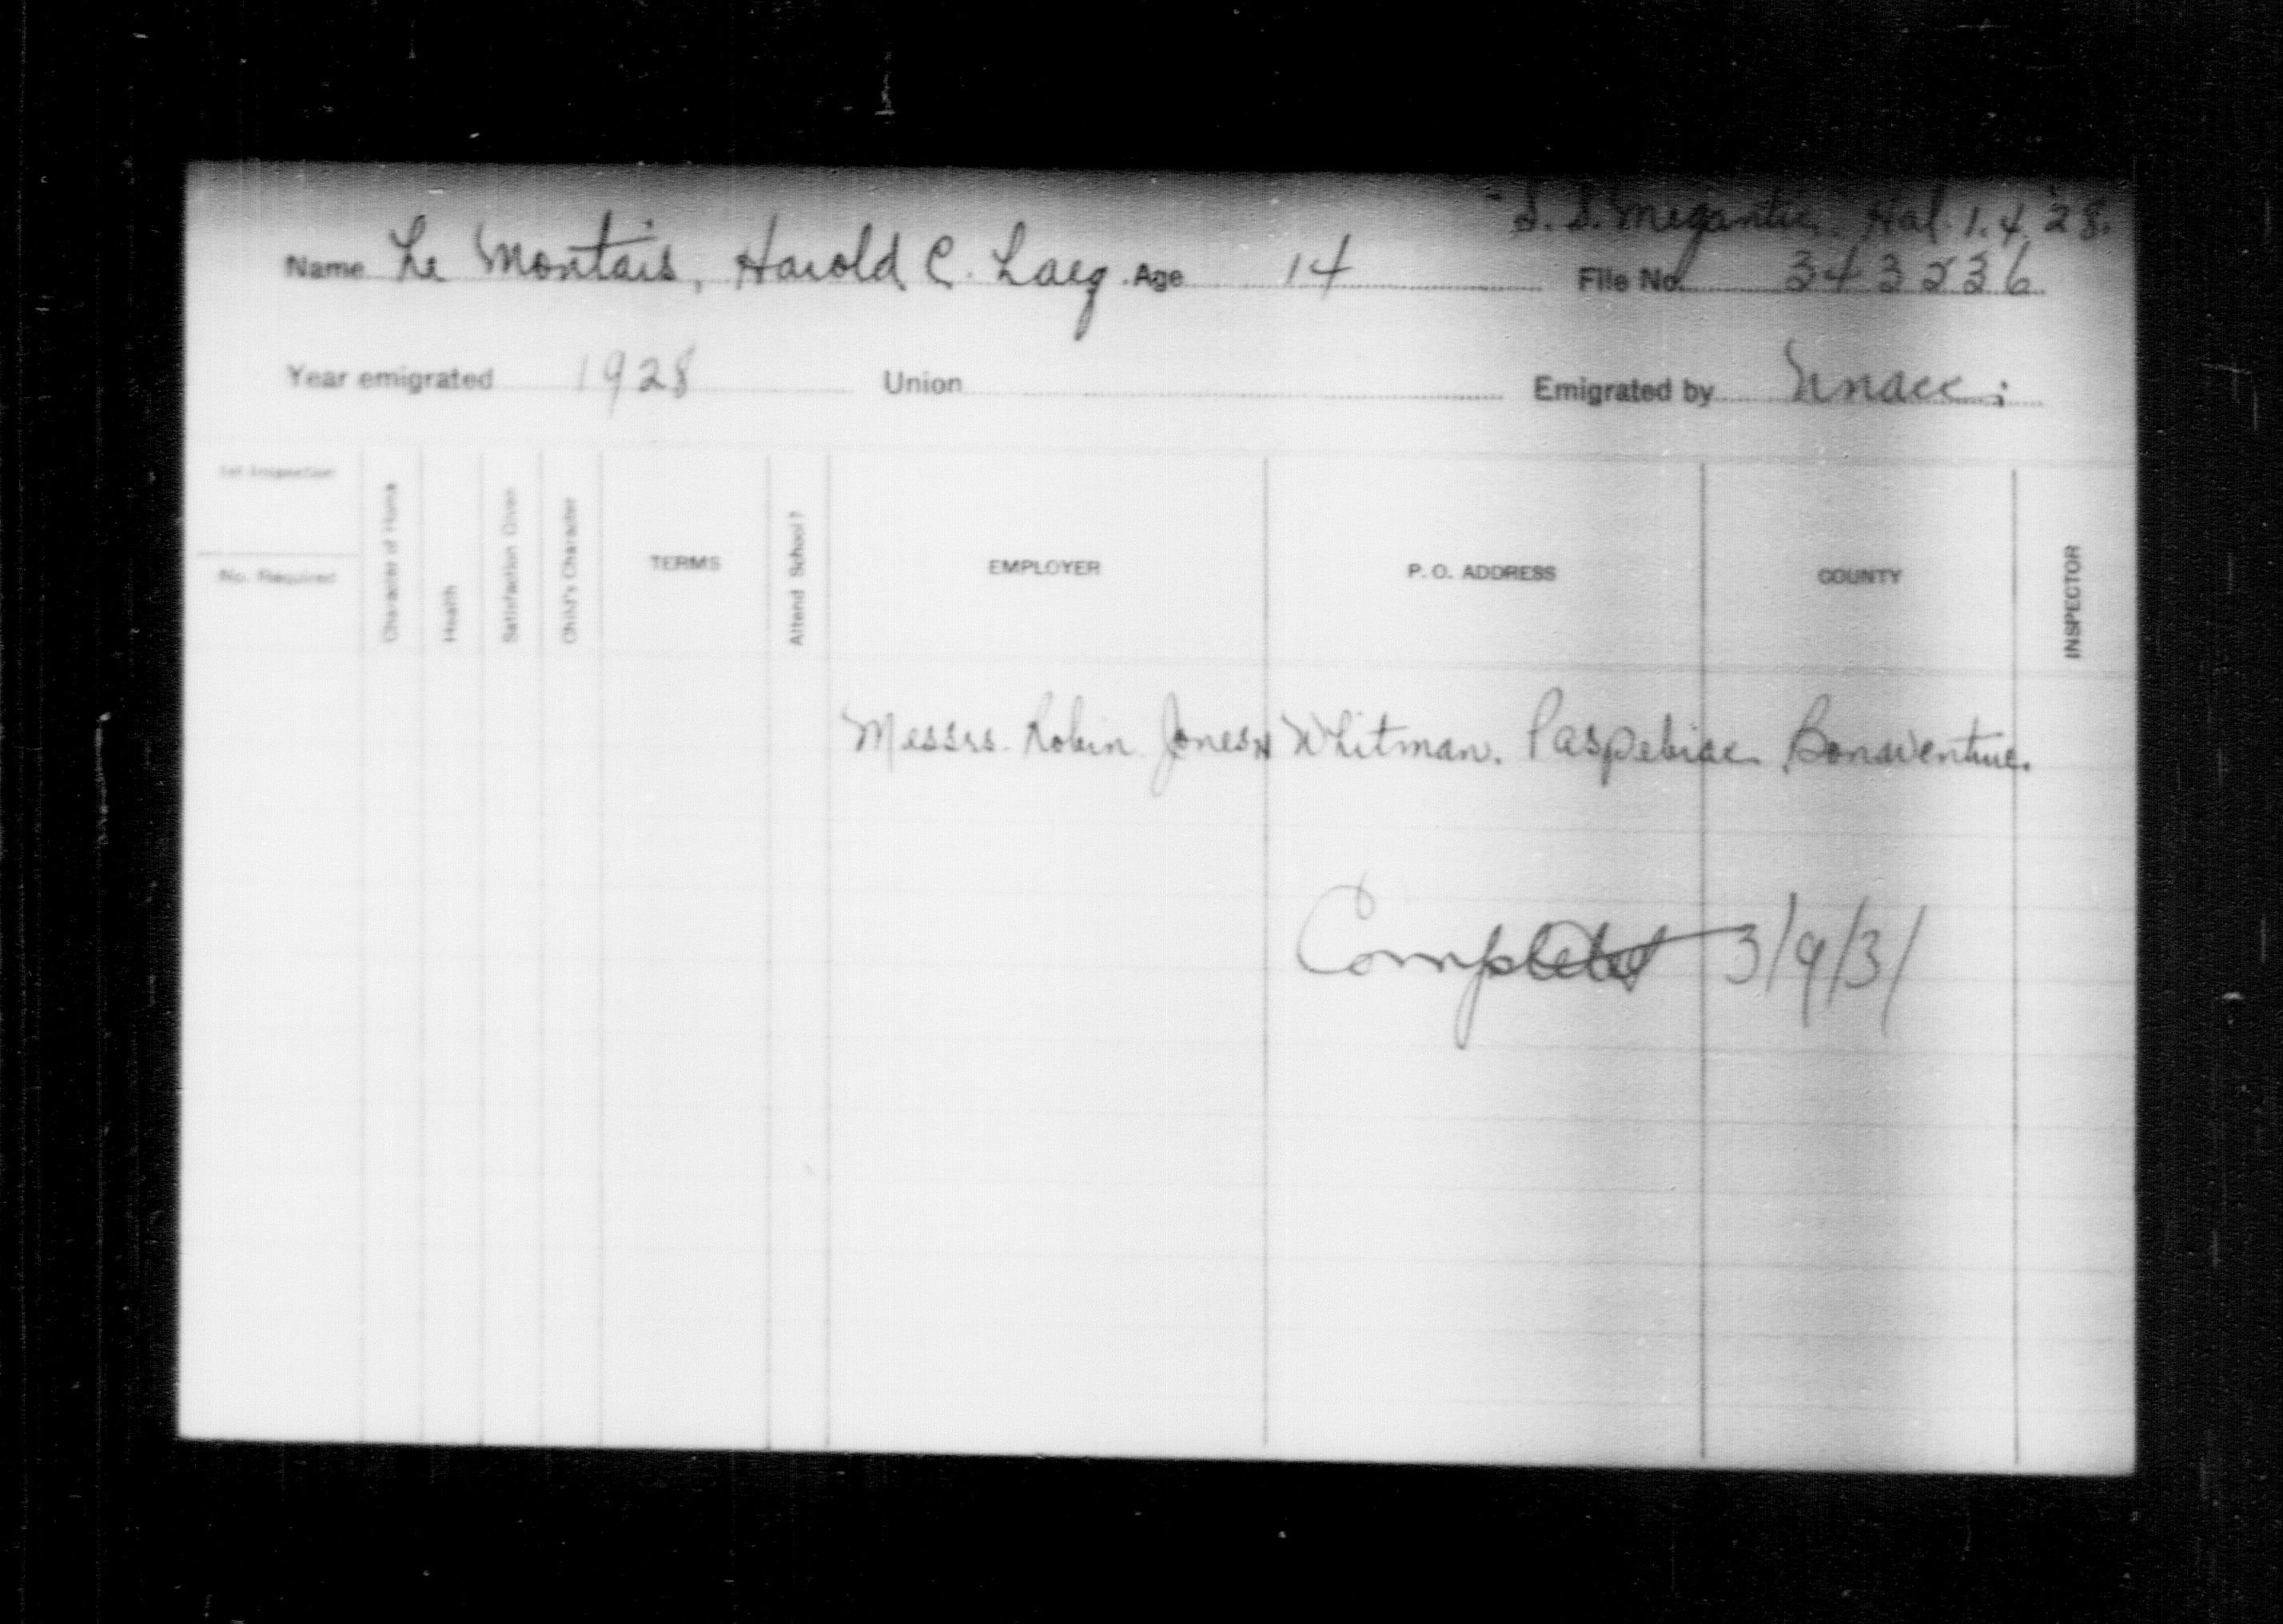 S.S. Megantic. Hal. 1.4.28.
Name Le Montais, Harold C. Laeg. Age 14 File No. 343236
Year emigrated 1928 Union Emigrated by
1st Inspection
No. Required
Character of Home
Health
Satisfaction Given
Child's Character
TERMS
Attend School?
EMPLOYER
P. O. ADDRESS
COUNTY
INSPECTOR
Messrs. Robin Jones & Whitman. Paspebiac Bonaventure.
Completed 3/9/31